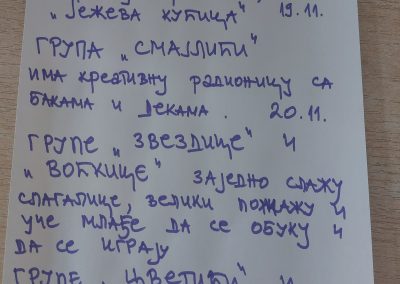 „Јежева кућица" 19.11.
ГРУПА „СМАЈЛИЋИ"
ИМА КРЕАТИВНУ РАДИОНИЦУ СА
БАКАМА И ДЕКАМА. 20.11.
ГРУПЕ „ЗВЕЗДИЦЕ" И
„ВОЋКИЦЕ" ЗАЈЕДНО СЛАЖУ
СЛАГАЛИЦЕ, ВЕЛИКИ ПОМАЖУ И
УЧЕ МЛАЂЕ ДА СЕ ОБУКУ И
ДА СЕ ИГРАЈУ
ГРУПЕ „ЦВЕТИЋИ" И